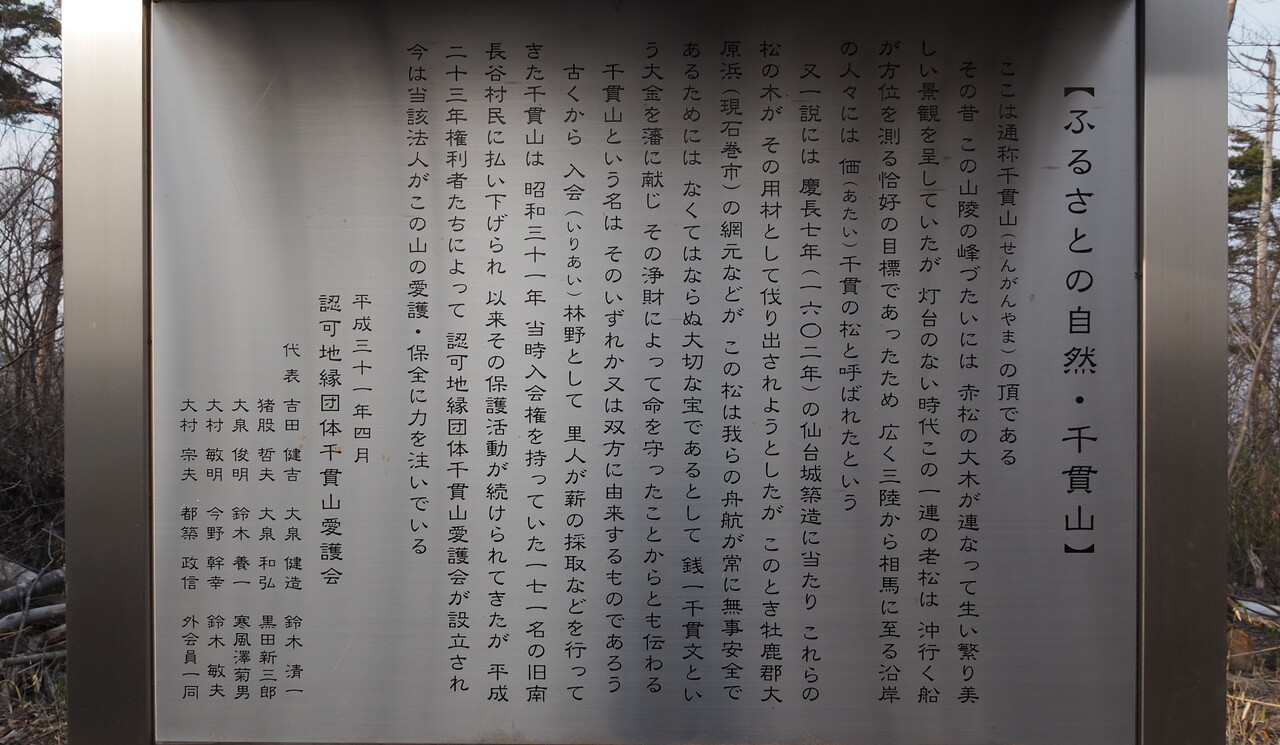 【ふるさとの自然・千貫山】
ここは通称千貫山（せんがんやま）の頂である
その昔 この山陵の峰づたいには 赤松の大木が連なって生い繁り美
しい景観を呈していたが 灯台のない時代この一連の老松は 沖行く船
が方位を測る恰好の目標であったため 広く三陸から相馬に至る沿岸
の人々には 価（あたい）千貫の松と呼ばれたという
又一説には 慶長七年（一六〇二年）の仙台城築造に当たり これらの
松の木が その用材として伐り出されようとしたが このとき牡鹿郡大
原浜（現石巻市）の網元などが この松は我らの舟航が常に無事安全で
あるためには なくてはならぬ大切な宝であるとして 銭一千貫文とい
う大金を藩に献じ その浄財によって命を守ったことからとも伝わる
千貫山という名は そのいずれか又は双方に由来するものであろう
古くから 入会（いりあい）林野として 里人が薪の採取などを行って
きた千貫山は 昭和三十一年 当時入会権を持っていた一七一名の旧南
長谷村民に払い下げられ 以来その保護活動が続けられてきたが 平成
二十三年権利者たちによって 認可地縁団体千貫山愛護会が設立され
今は当該法人がこの山の愛護・保全に力を注いでいる
平成三十一年四月
認可地縁団体千貫山愛護会
代表 吉田 健吉 大泉 健造 鈴木 清一
猪股 哲夫 大泉 和弘 黒田新三郎
大泉 俊明 鈴木 養一 寒風澤菊男
大村 敏明 今野 幹幸 鈴木 敏夫
大村 宗夫 都築 政信 外会員一同